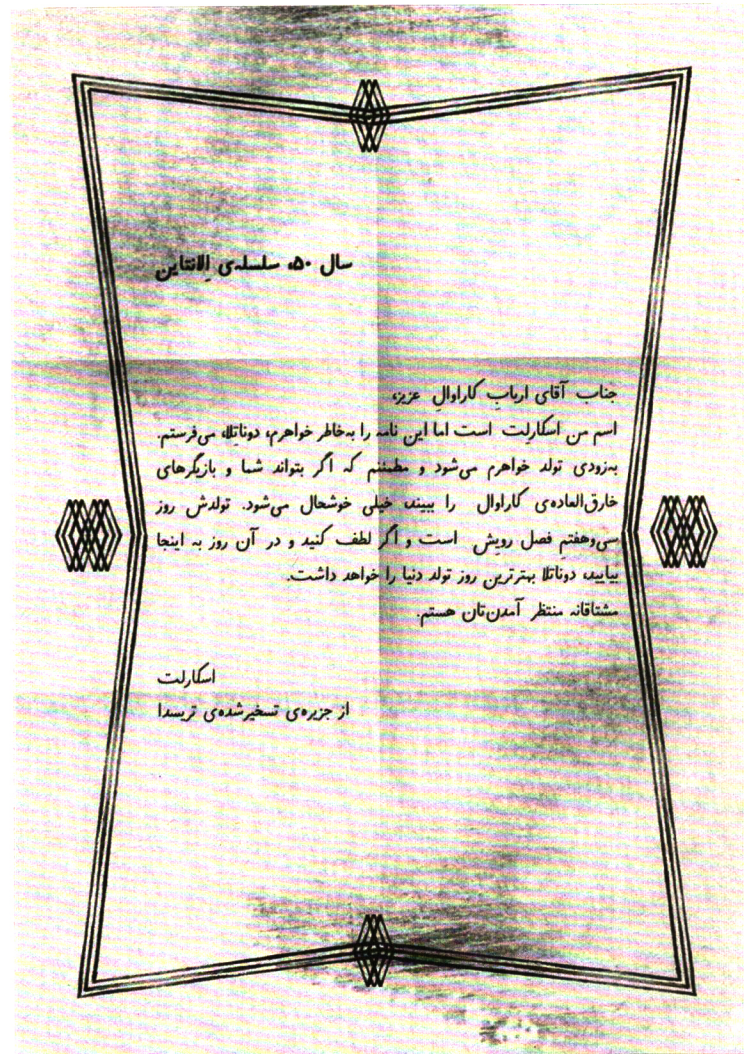 سال ۵۰، سلسله‌ی اِلانتاین
جناب آقای اربابِ کاراوالِ عزیز،
اسم من اسکارلت است اما این نامه را به‌خاطر خواهرم، دوناتلا، می‌فرستم.
به‌زودی تولد خواهرم می‌شود و مطمئنم که اگر بتواند شما و بازیگرهای
خارق‌العاده‌ی کاراوال را ببیند، خیلی خوشحال می‌شود. تولدش روز
سی‌وهفتمِ فصل رویش است و اگر لطف کنید و در آن روز به اینجا
بیایید، دوناتلا بهترترین روز تولد دنیا را خواهد داشت.
مشتاقانه منتظر آمدن‌تان هستم.
اسکارلت
از جزیره‌ی تسخیرشده‌ی تریسدا